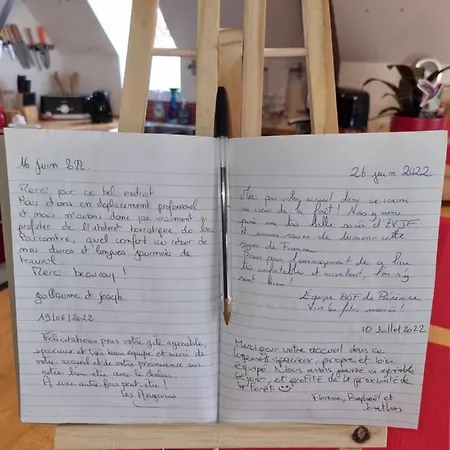 16 juin 2022.
Merci pour ce bel endroit
Nous étions en déplacement professionnel
et nous n'avons donc pas vraiment pu
profiter de
Par contre, quel confort au retour de
nos dures et longues journées de
travail.
Merci beaucoup !
Guillaume et Joseph
19/06/2022
Félicitations pour votre gîte agréable,
spacieux et très bien équipé et merci de
votre accueil et de votre prévenance sur
notre bien être avec la chaleur.
A une autre fois peut être !
Les Angevins
26 juin 2022
Merci pour votre accueil dans ce cocon
au cœur de la forêt ! Nous y avons
passé une très belle soirée d'EVJF
et sommes ravies de découvrir cette
région de France
Bravo pour l'aménagement de ce lieu
très confortable et accueillant, l'on s'y
sent bien !
Equipe EVJF de
Vive les futurs mariés !
10 Juillet 2022
Merci pour votre accueil dans ce
logement spacieux, propre et bien
équipé. Nous avons passé un agréable
séjour, et profité de la proximité de
la forêt. ☺
Florence, Raphaël et
Jonathan